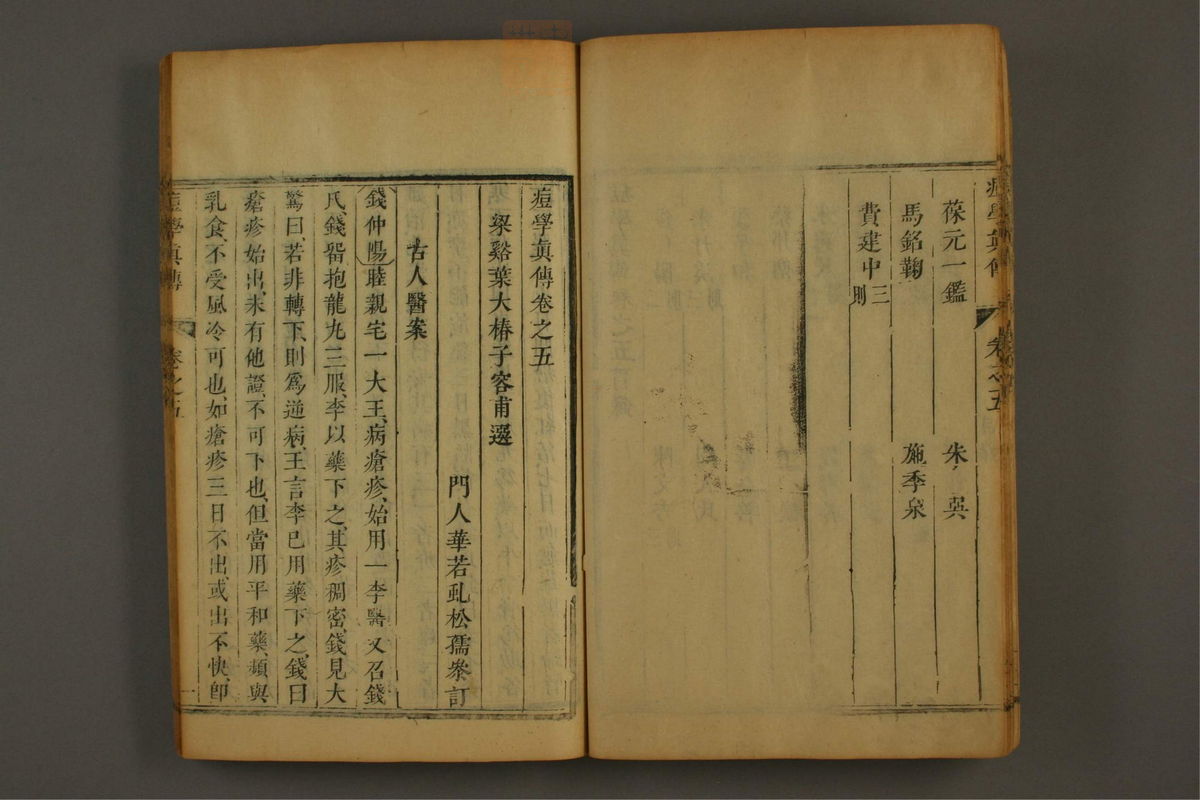 痘學眞傳 卷之五
葆元一鑑 朱巽
馬銘鞠 施季泉
費建中三則
痘學眞傳卷之五
梁谿葉大椿子容甫選
門人華若虬松孺叅訂
古人醫案
錢仲陽睦親宅一大王、病瘡疹、始用一李醫又召錢
氏、錢畱抱龍丸三服、李以藥下之、其疹稠密錢見大
驚曰、若非轉下、則爲逆病、王言李已用藥下之、錢曰
瘡疹始出、未有他證、不可下也、但當用平和藥、頻與
乳食、不受風冷可也、如瘡疹三日不出、或出不快、卽
痘學眞傳 卷之五 一